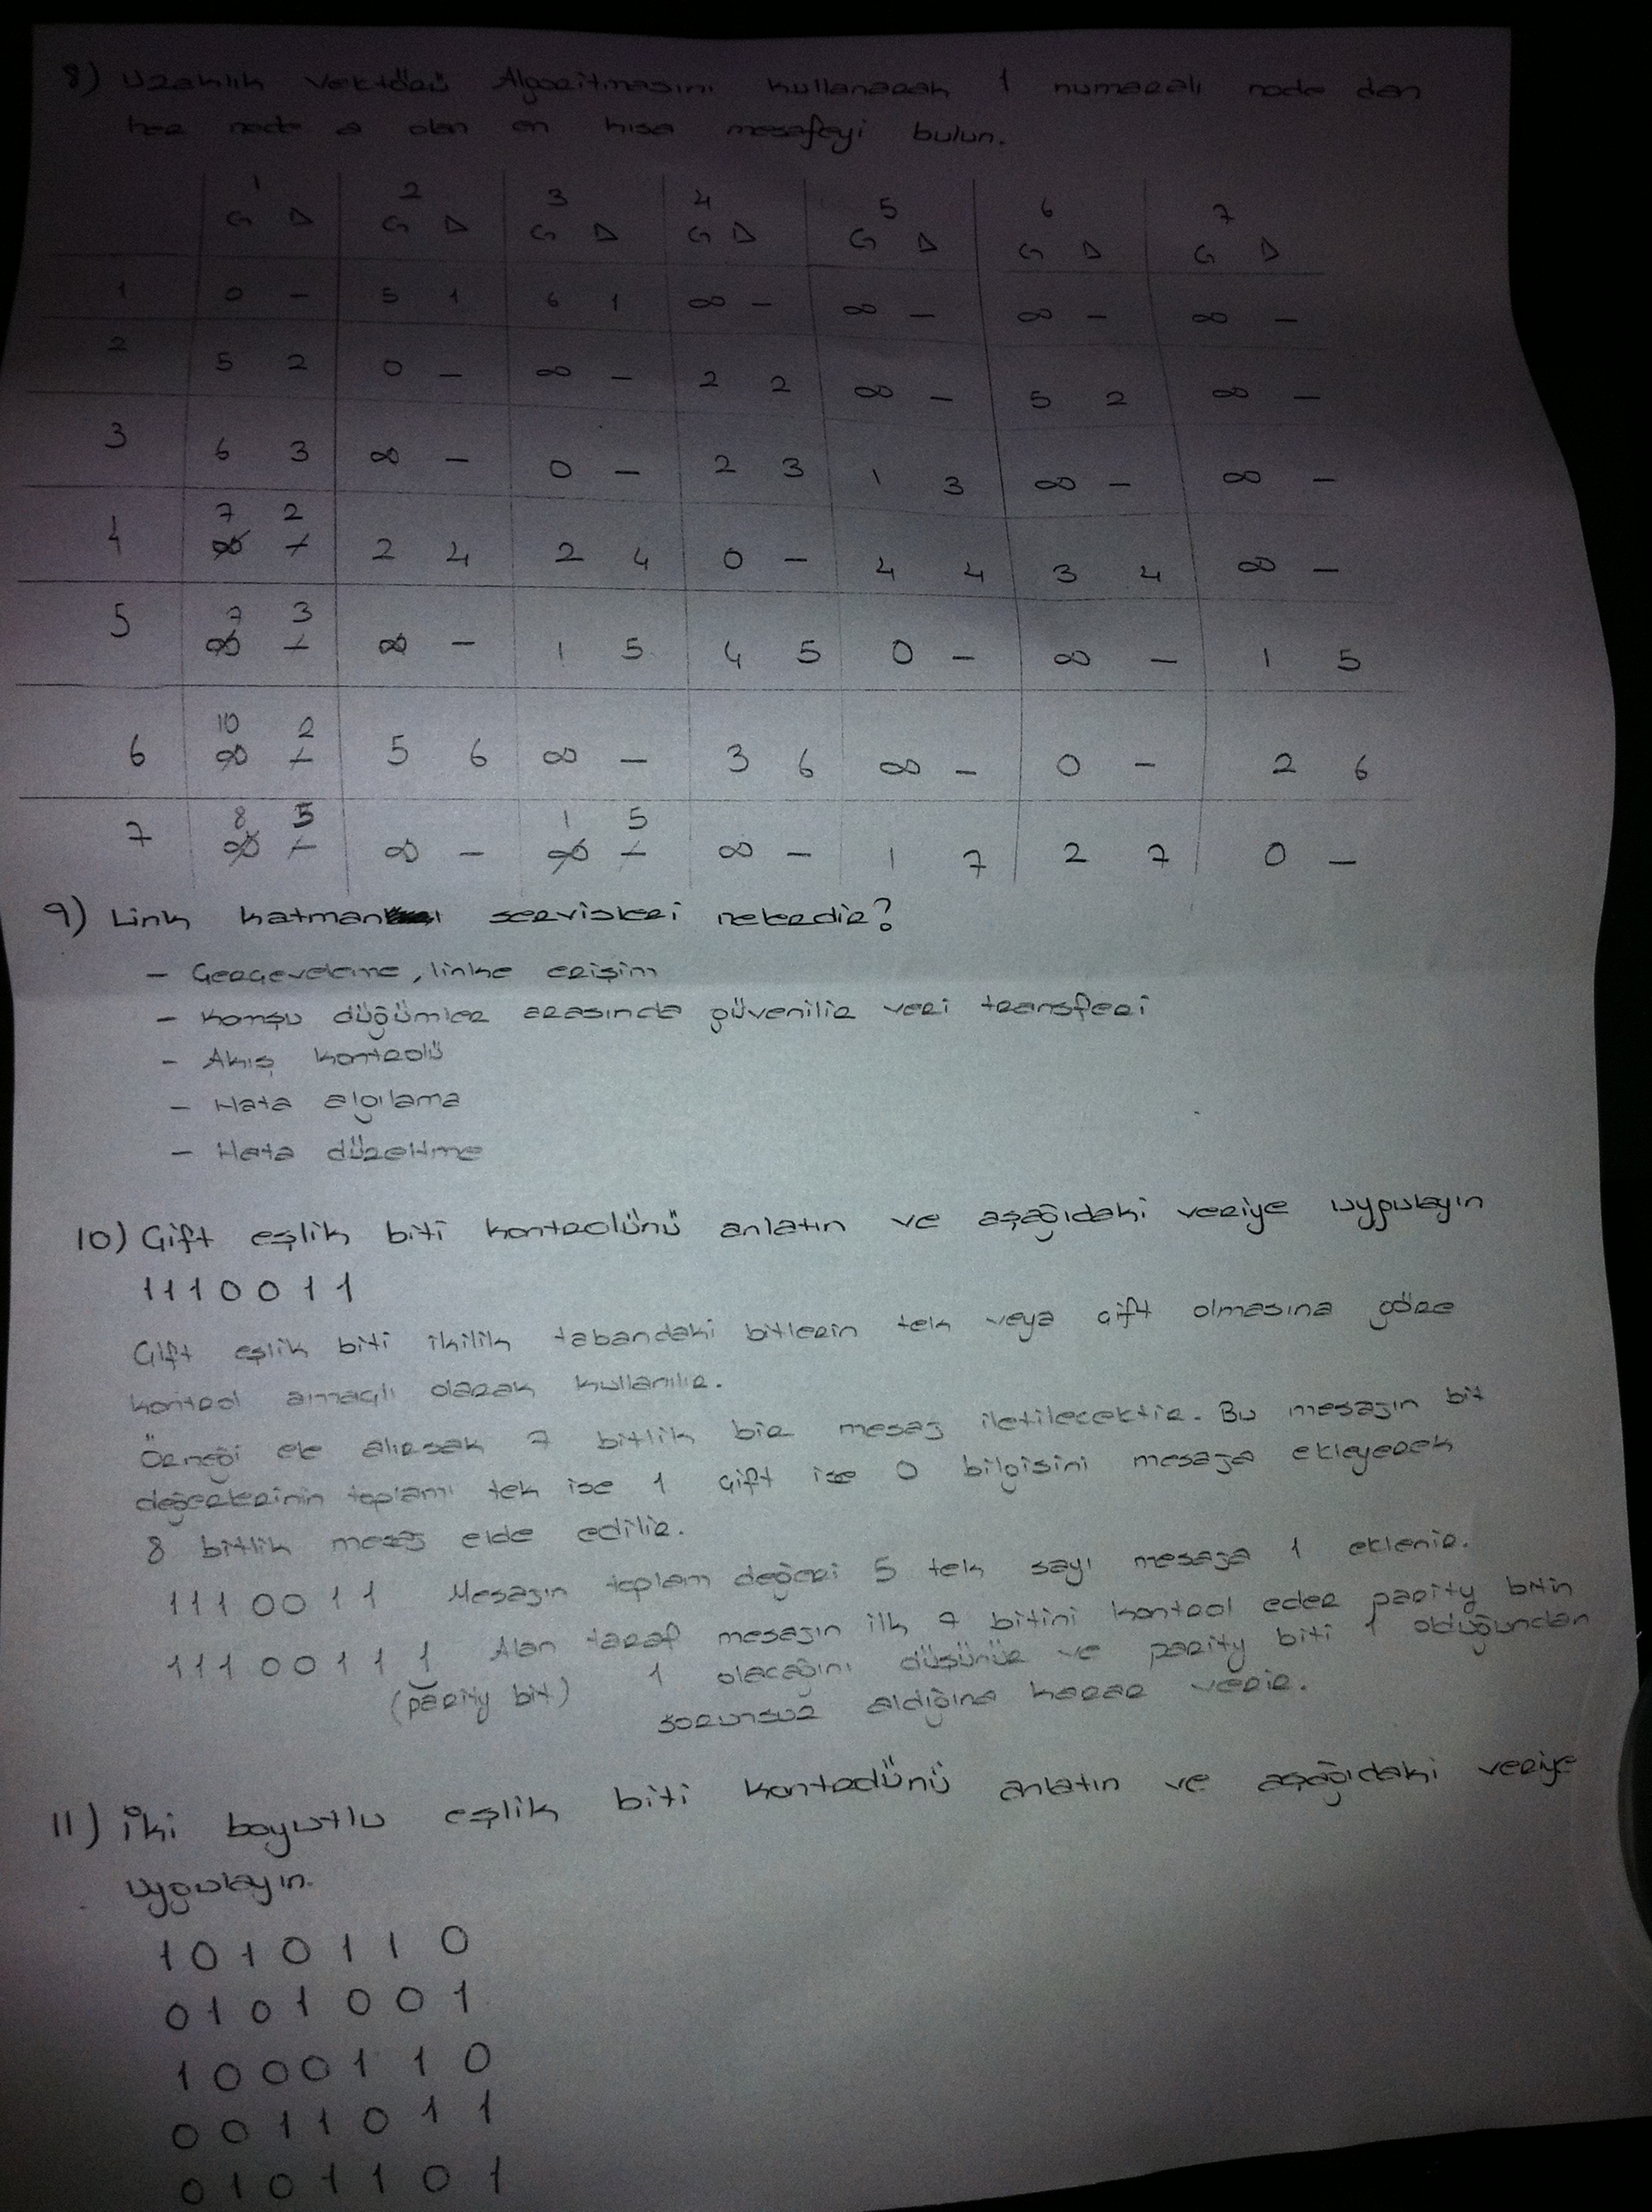 8) Uzaklık Vektörü Algoritmasını kullanarak 1 numaralı node dan
her node a olan en kısa mesafeyi bulun.
1 2 3 4 5 6 7
G D G D G D G D G D G D G D
1 0 - 5 1 6 1 ∞ - ∞ - ∞ - ∞ -
2 5 2 0 - ∞ - 2 2 ∞ - 5 2 ∞ -
3 6 3 ∞ - 0 - 2 3 1 3 ∞ - ∞ -
7 2
4 ∞ - 2 4 2 4 0 - 4 4 3 4 ∞ -
7 3
5 ∞ - ∞ - 1 5 4 5 0 - ∞ - 1 5
10 2
6 ∞ - 5 6 ∞ - 3 6 ∞ - 0 - 2 6
8 5 1 5
7 ∞ - ∞ - ∞ - ∞ - 1 7 2 7 0 -
9) Link katmanı servisleri nelerdir?
- Çerçeveleme, linke erişim
- Komşu düğümler arasında güvenilir veri transferi
- Akış kontrolü
- Hata algılama
- Hata düzeltme
10) Çift eşlik biti kontrolünü anlatın ve aşağıdaki veriye uygulayın
1110011
Çift eşlik biti ikilik tabandaki bitlerin tek veya çift olmasına göre
kontrol amaçlı olarak kullanılır.
Örneği ele alırsak 7 bitlik bir mesaj iletilecektir. Bu mesajın bit
değerlerinin toplamı tek ise 1 çift ise 0 bilgisini mesaja ekleyerek
8 bitlik mesaj elde edilir.
1110011 Mesajın toplam değeri 5 tek sayı mesaja 1 eklenir.
11100111 Alan taraf mesajın ilk 7 bitini kontrol eder parity bitin
(parity bit) 1 olacağını düşünür ve parity biti 1 olduğundan
sorunsuz aldığına karar verir.
11) İki boyutlu eşlik biti kontrolünü anlatın ve aşağıdaki veriye
uygulayın.
1010110
0101001
1000110
0011011
0101101